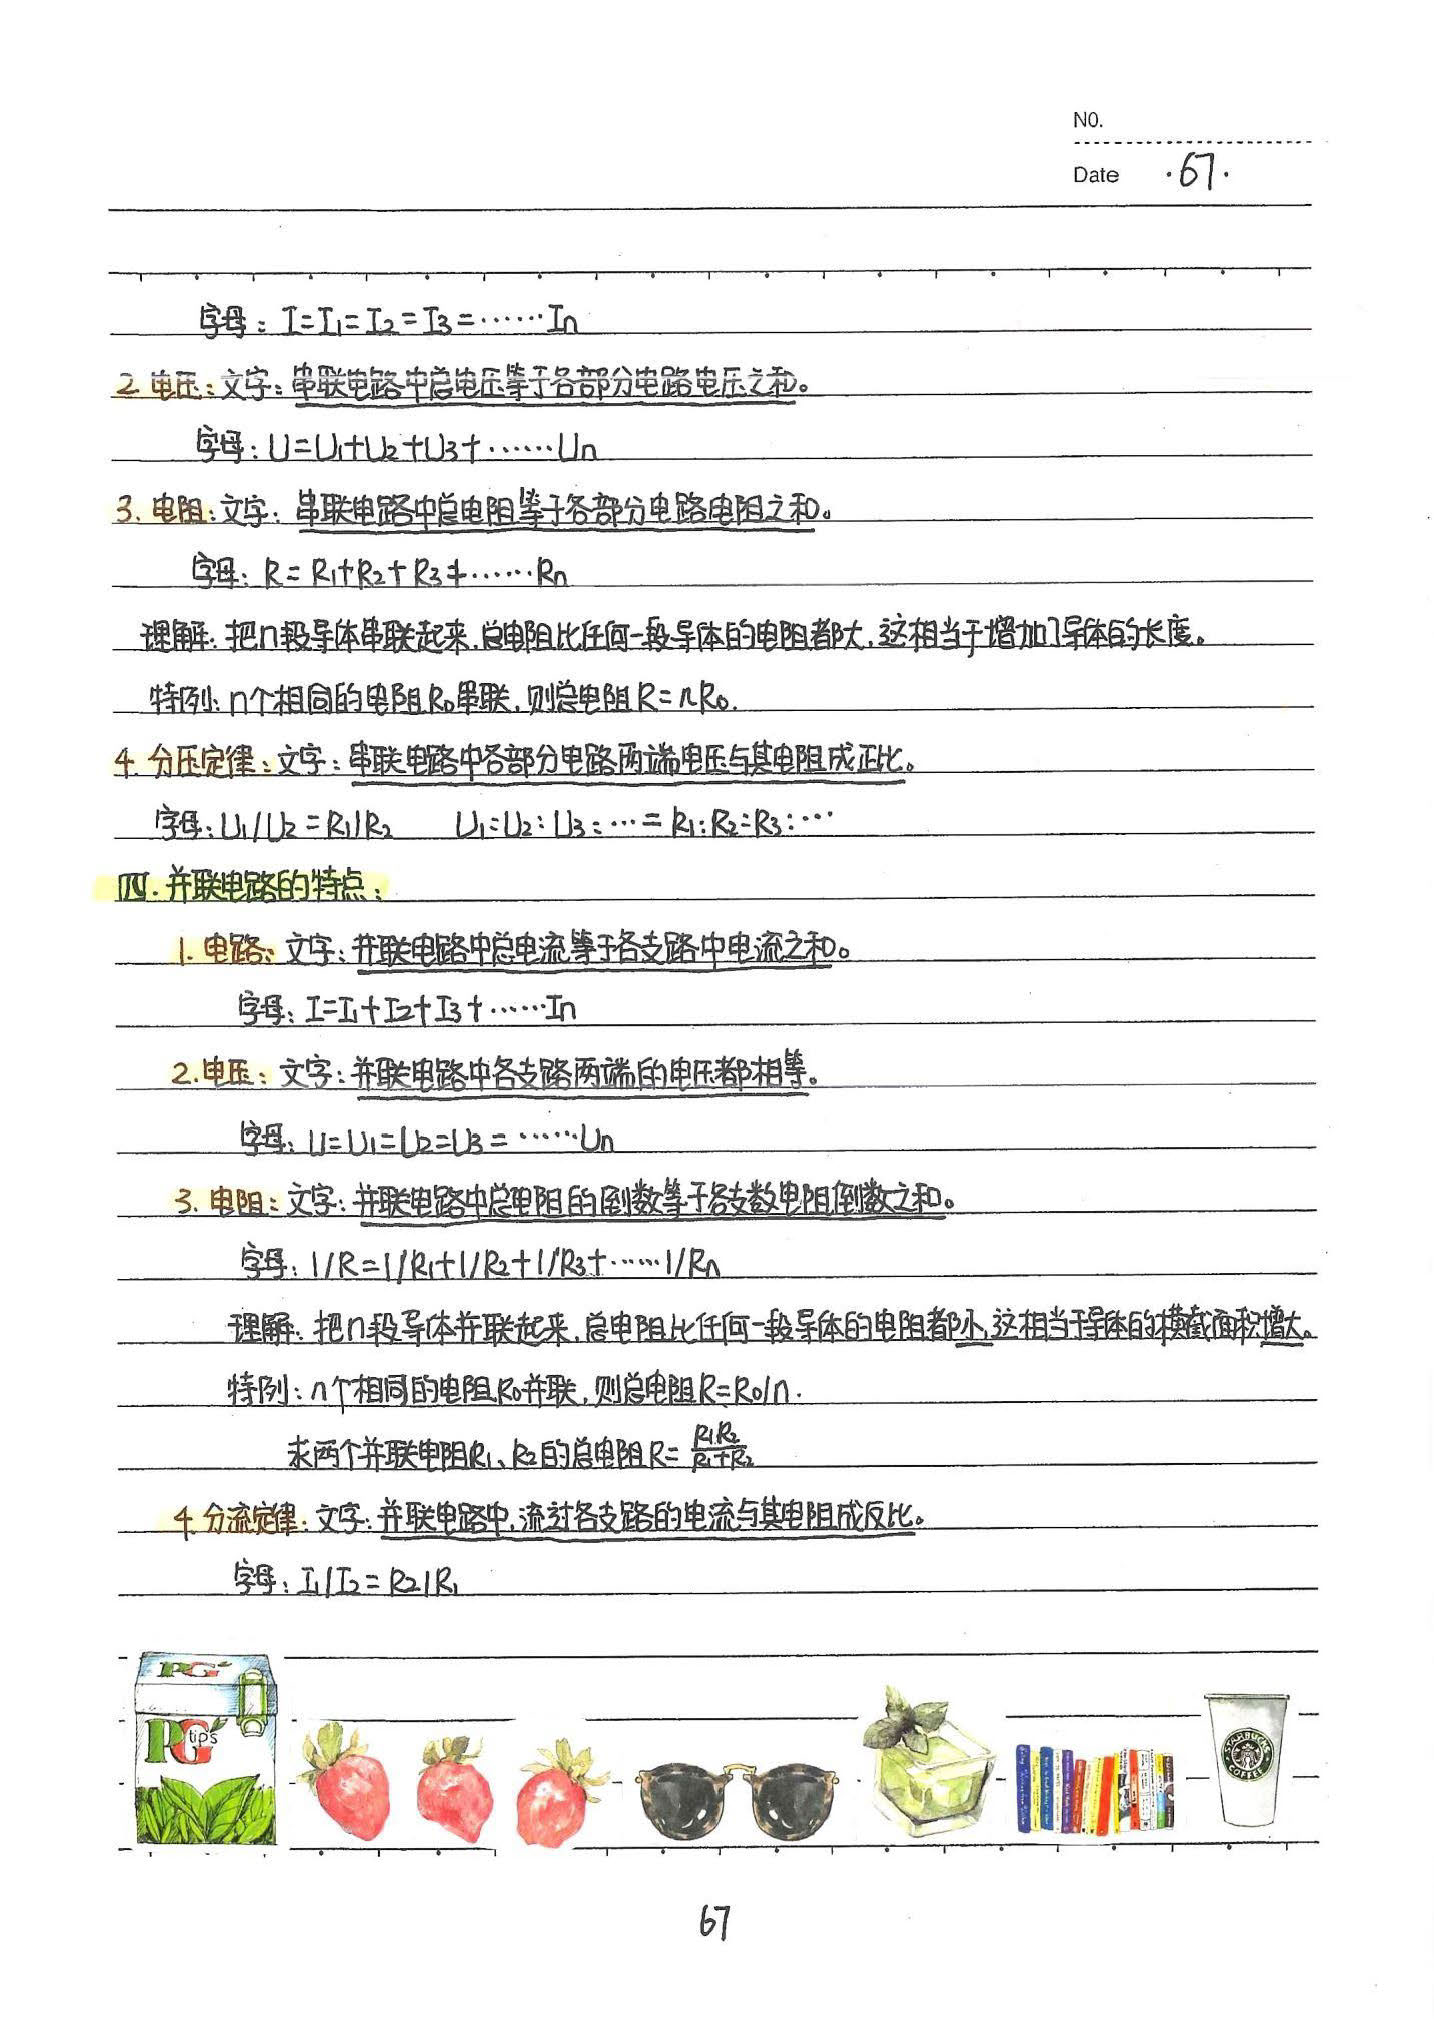 NO.
Date ·67·
字母：I=I₁=I₂=I₃=……In
2.电压：文字：串联电路中总电压等于各部分电路电压之和。
字母：U=U₁+U₂+U₃+……Un
3.电阻：文字：串联电路中总电阻等于各部分电路电阻之和。
字母：R=R₁+R₂+R₃+……Rn
理解：把n段导体串联起来，总电阻比任何一段导体的电阻都大，这相当于增加了导体的长度。
特例：n个相同的电阻R₀串联，则总电阻R=nR₀.
4.分压定律：文字：串联电路中各部分电路两端电压与其电阻成正比。
字母：U₁/U₂=R₁/R₂ U₁:U₂:U₃:…=R₁:R₂:R₃:…
四.并联电路的特点：
1.电路：文字：并联电路中总电流等于各支路中电流之和。
字母：I=I₁+I₂+I₃+……In
2.电压：文字：并联电路中各支路两端的电压都相等。
字母：U=U₁=U₂=U₃=……Un
3.电阻：文字：并联电路中总电阻的倒数等于各支数电阻倒数之和。
字母：1/R=1/R₁+1/R₂+1/R₃+……1/Rn
理解：把n段导体并联起来，总电阻比任何一段导体的电阻都小，这相当于导体的横截面积增大。
特例：n个相同的电阻R₀并联，则总电阻R=R₀/n.
求两个并联电阻R₁、R₂的总电阻R=R₁R₂/R₁+R₂
4.分流定律：文字：并联电路中，流过各支路的电流与其电阻成反比。
字母：I₁/I₂=R₂/R₁
PG
PG tips
STARBUCKS COFFEE
67